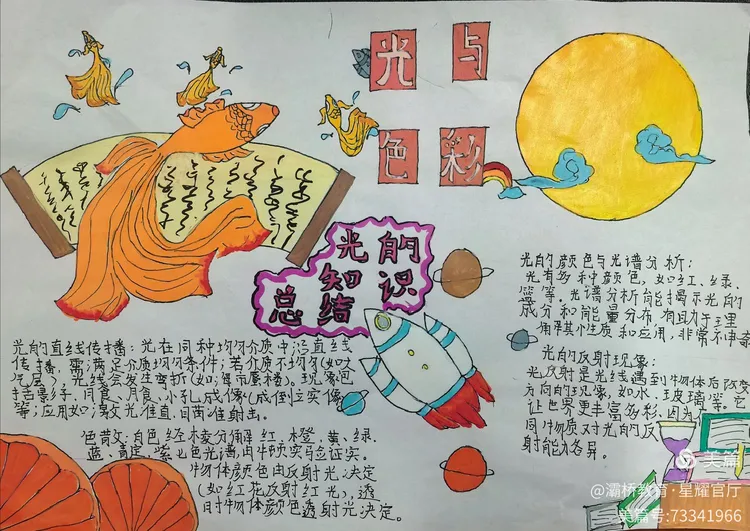 光与
色彩
光的
知识
总结
光的直线传播：光在同种均匀介质中沿直线
传播，需满足介质均匀条件；若介质不均匀（如大
气层），光线会发生弯折（如：海市蜃楼）。现象包
括：影子、月食、日食、小孔成像（成倒立实像）
等；应用如：激光准直、日常瞄准射击。
色散：白色经棱镜分解红、橙、黄、绿、
蓝、靛、紫七色光谱由牛顿实验证实。
物体颜色由反射光决定
（如红花反射红光），透
明物体颜色透射光决定。
光的颜色与光谱分析：
光有多种颜色，如红、绿、
蓝等。光谱分析能揭示光的
成分和能量分布，有助于理
解其性质和应用，非常不
光的反射现象：
光反射是光线遇到物体后改变
方向的现象，如水、玻璃等。它
让世界更丰富多彩，因为
同物质对光的反
射能力各异。
美篇
@灞桥教育·星耀官厅
美篇号:73341966